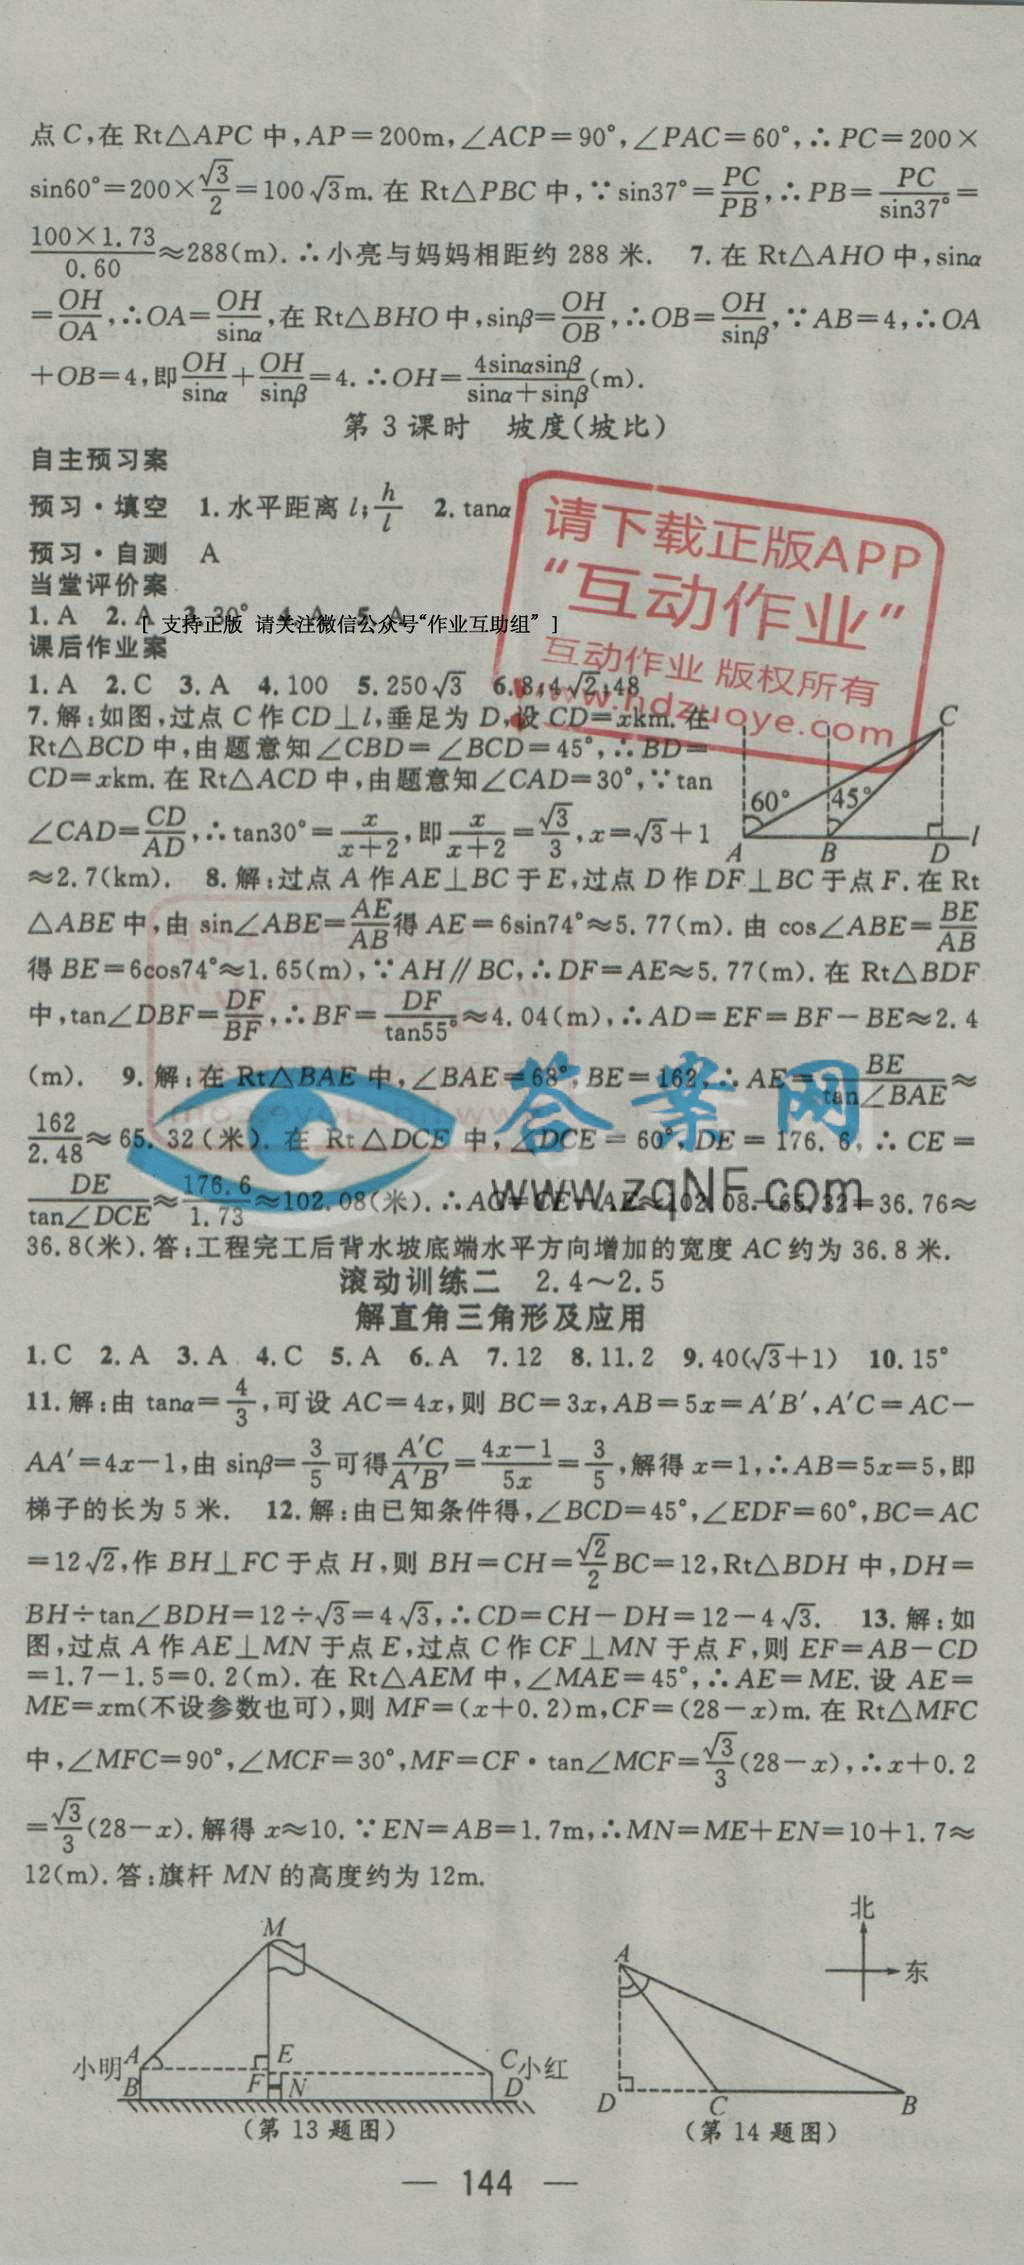 点C,在 Rt△APC 中,AP=200m,∠ACP=90°,∠PAC=60°,∴PC=200×
sin60°=200×√3/2=100√3m.在 Rt△PBC 中,∵sin37°=PC/PB,∴PB=PC/sin37°=
100×1.73/0.60≈288(m).∴小亮与妈妈相距约 288 米. 7.在 Rt△AHO 中,sinα
=OH/OA,∴OA=OH/sinα,在 Rt△BHO 中,sinβ=OH/OB,∴OB=OH/sinβ,∵AB=4,∴OA
+OB=4,即OH/sinα+OH/sinβ=4.∴OH=4sinαsinβ/(sinα+sinβ)(m).
第 3 课时 坡度(坡比)
自主预习案
预习·填空 1.水平距离 l;h/l 2.tanα
预习·自测 A
当堂评价案
1.A 2.A 3.30° 4.A 5.A
[ 支持正版 请关注微信公众号“作业互助组” ]
课后作业案
1.A 2.C 3.A 4.100 5.250√3 6.8;4√2;48
7.解:如图,过点 C 作 CD⊥l,垂足为 D,设 CD=xkm.在
Rt△BCD 中,由题意知∠CBD=∠BCD=45°,∴BD=
CD=xkm.在 Rt△ACD 中,由题意知∠CAD=30°,∵tan
∠CAD=CD/AD,∴tan30°=x/(x+2),即x/(x+2)=√3/3,x=√3+1
≈2.7(km). 8.解:过点 A 作 AE⊥BC 于 E,过点 D 作 DF⊥BC 于点 F.在 Rt
△ABE 中,由 sin∠ABE=AE/AB得 AE=6sin74°≈5.77(m).由 cos∠ABE=BE/AB
得 BE=6cos74°≈1.65(m),∵AH∥BC,∴DF=AE≈5.77(m).在 Rt△BDF
中,tan∠DBF=DF/BF,∴BF=DF/tan55°≈4.04(m),∴AD=EF=BF-BE≈2.4
(m). 9.解:在 Rt△BAE 中,∠BAE=68°,BE=162,∴AE=BE/tan∠BAE≈
162/2.48≈65.32(米).在 Rt△DCE 中,∠DCE=60°,DE=176.6,∴CE=
DE/tan∠DCE≈176.6/1.73≈102.08(米).∴AC=CE-AE≈102.08-65.32=36.76≈
36.8(米).答:工程完工后背水坡底端水平方向增加的宽度 AC 约为 36.8 米.
滚动训练二 2.4~2.5
解直角三角形及应用
1.C 2.A 3.A 4.C 5.A 6.A 7.12 8.11.2 9.40(√3+1) 10.15°
11.解:由 tanα=4/3,可设 AC=4x,则 BC=3x,AB=5x=A′B′,A′C=AC-
AA′=4x-1,由 sinβ=3/5可得A′C/A′B′=(4x-1)/5x=3/5,解得 x=1,∴AB=5x=5,即
梯子的长为 5 米. 12.解:由已知条件得,∠BCD=45°,∠EDF=60°,BC=AC
=12√2,作 BH⊥FC 于点 H,则 BH=CH=√2/2BC=12,Rt△BDH 中,DH=
BH÷tan∠BDH=12÷√3=4√3,∴CD=CH-DH=12-4√3. 13.解:如
图,过点 A 作 AE⊥MN 于点 E,过点 C 作 CF⊥MN 于点 F,则 EF=AB-CD
=1.7-1.5=0.2(m).在 Rt△AEM 中,∠MAE=45°,∴AE=ME.设 AE=
ME=xm(不设参数也可),则 MF=(x+0.2)m,CF=(28-x)m.在 Rt△MFC
中,∠MFC=90°,∠MCF=30°,MF=CF·tan∠MCF=√3/3(28-x),∴x+0.2
=√3/3(28-x).解得 x≈10.∵EN=AB=1.7m,∴MN=ME+EN=10+1.7≈
12(m).答:旗杆 MN 的高度约为 12m.
请下载正版APP
“互动作业”
互动作业 版权所有
www.hdzuoye.com
C
60°
45°
A B D l
答案网
www.zqNF.com
M
小明 A
B
E
F N
C 小红
D
(第 13 题图)
北
东
A
D C B
(第 14 题图)
— 144 —